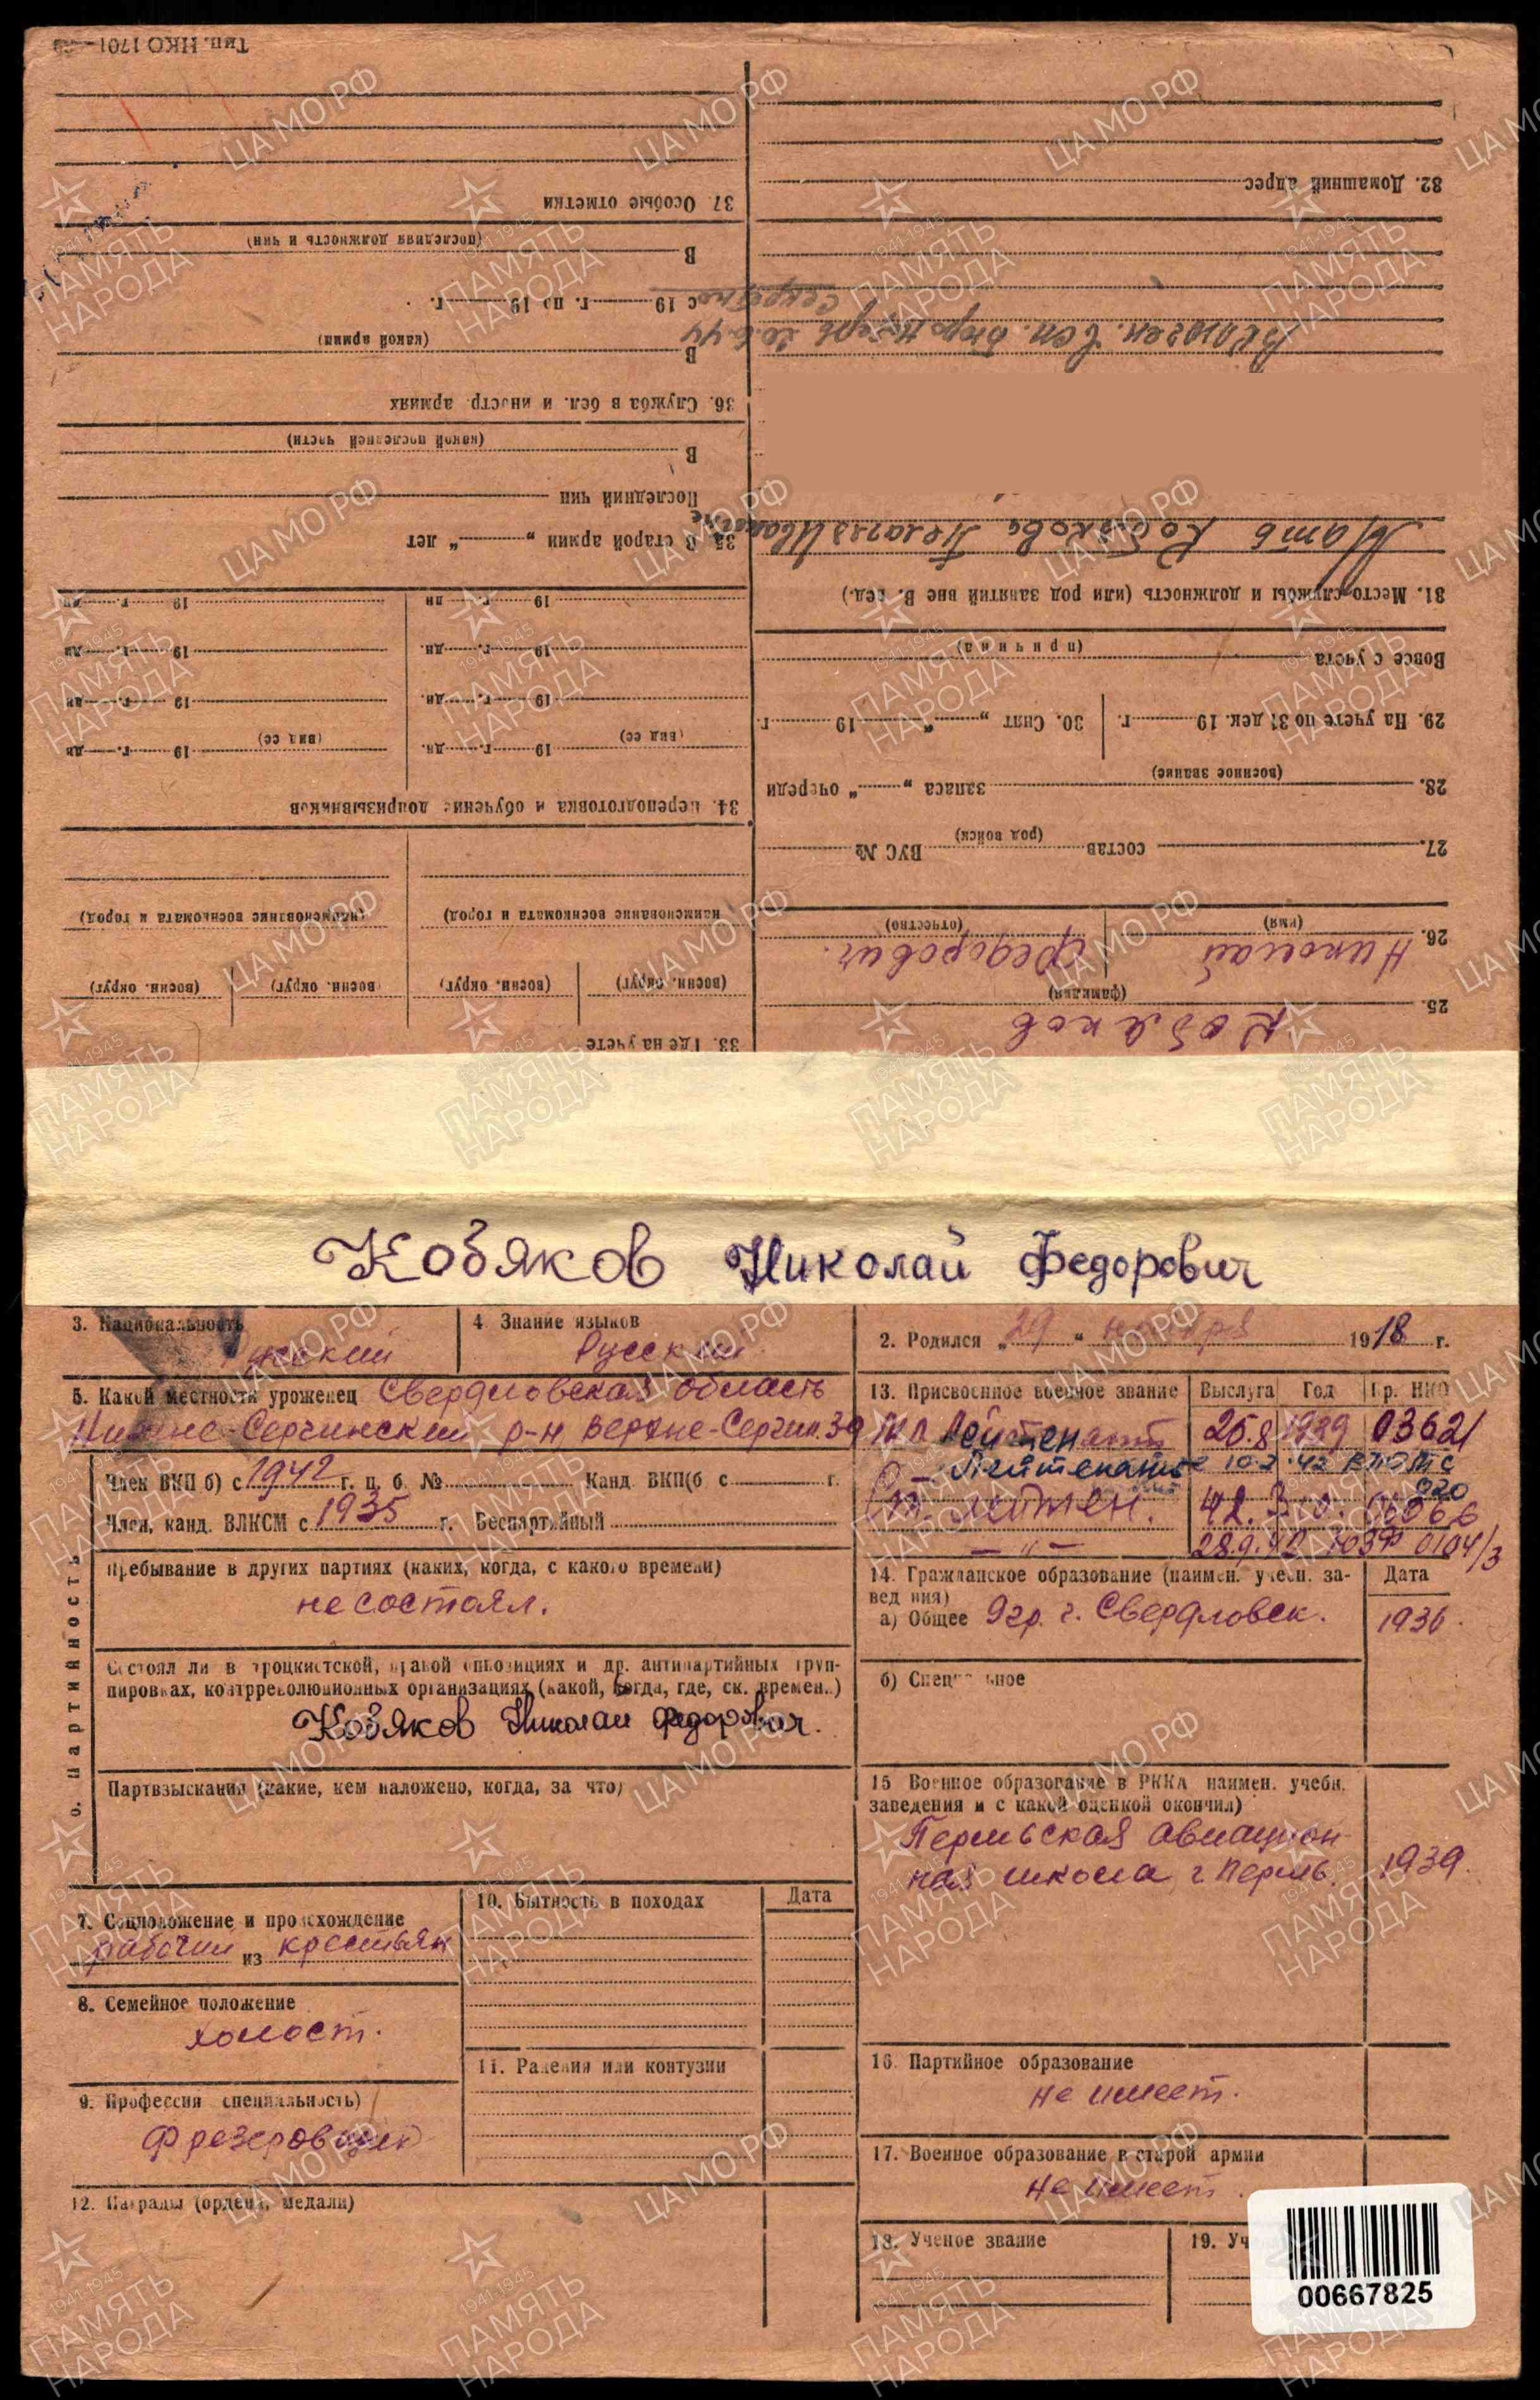 Тип. НКО 1701
37. Особые отметки
(последняя должность и чин)
В
с 19 г. по 19 г.
(какой армии)
В
36. Служба в бел. и иностр. армиях
(какой последней части)
В
Последний чин
35. В старой армии „ “ лет
19 г. дн
19 г. дн
19 г. дн.
19 г. дн
19 г. дн.
19 г. дн
(вид сс) 19 г. дн.
(вид сс) 19 г. дн
34. Переподготовка и обучение допризывников
наименование военкомата и город)
(наименование военкомата и город)
(воен. округ) (воен. округ) воен. округ) (воен. округ)
33. Где на учете
32. Домашний адрес
20.6.44
Мать Кобякова Пелагея Ивановна
31. Место службы и должность (или род занятий вне В. вед.)
(причина)
Вовсе с учета
29. На учете по 31 дек. 19 г. 30. Снят „ “ 19 г.
(военное звание)
28. запаса „ “ очереди
(род войск)
27. состав ВУС №
(имя) (отчество)
26. Николай Федорович.
(фамилия)
25. Кобяков
Кобяков Николай Федорович
3. Национальность
русский
4 Знание языков
Русский
2. Родился „ 29 “ ноября 1918 г.
5. Какой местности уроженец Свердловская область
Нижне-Сергинский р-н Верхне-Сергин. з-д
13. Присвоенное военное звание Выслуга Год Пр. НКО
Мл Лейтенант 25.8 1939 03621
Лейтенант 10.2.42
220
Ст. лейтен. 42.
— „ — 28.9.42 ЮЗФ 0104/3
6. Партийность
Член ВКП б) с 1942 г. п. б. № Канд. ВКП(б с г.
Член, канд. ВЛКСМ с 1935 г. Беспартийный
Пребывание в других партиях (каких, когда, с какого времени)
не состоял.
Состоял ли в троцкистской, правой оппозициях и др. антипартийных груп-
пировках, контрреволюционных организациях (какой, когда, где, ск. времен.)
Кобяков Николай Федорович.
Партвзыскания (какие, кем наложено, когда, за что)
14. Гражданское образование (наимен. учебн. за-
вед ния) Дата
а) Общее 9 гр. г. Свердловск. 1936.
б) Специальное
15 Военное образование в РККА наимен. учебн.
заведения и с какой оценкой окончил)
Пермьская авиацион-
ная школа г Пермь. 1939.
7. Соцположение и происхождение
рабочий из крестьян
8. Семейное положение
холост.
9. Профессия специальность)
Фрезеровщик
10. Бытность в походах Дата
11. Ранения или контузии
12. Награды (ордена, медали)
16. Партийное образование
не имеет.
17. Военное образование в старой армии
не имеет.
18. Ученое звание 19. Уч
00667825
ЦА МО РФ
1941-1945
ПАМЯТЬ
НАРОДА